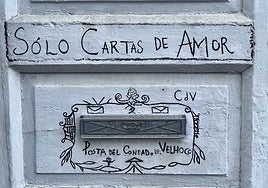 SÓLO CARTAS DE AMOR
CdV
POSTA DEL CONDADO DE VELHOCO